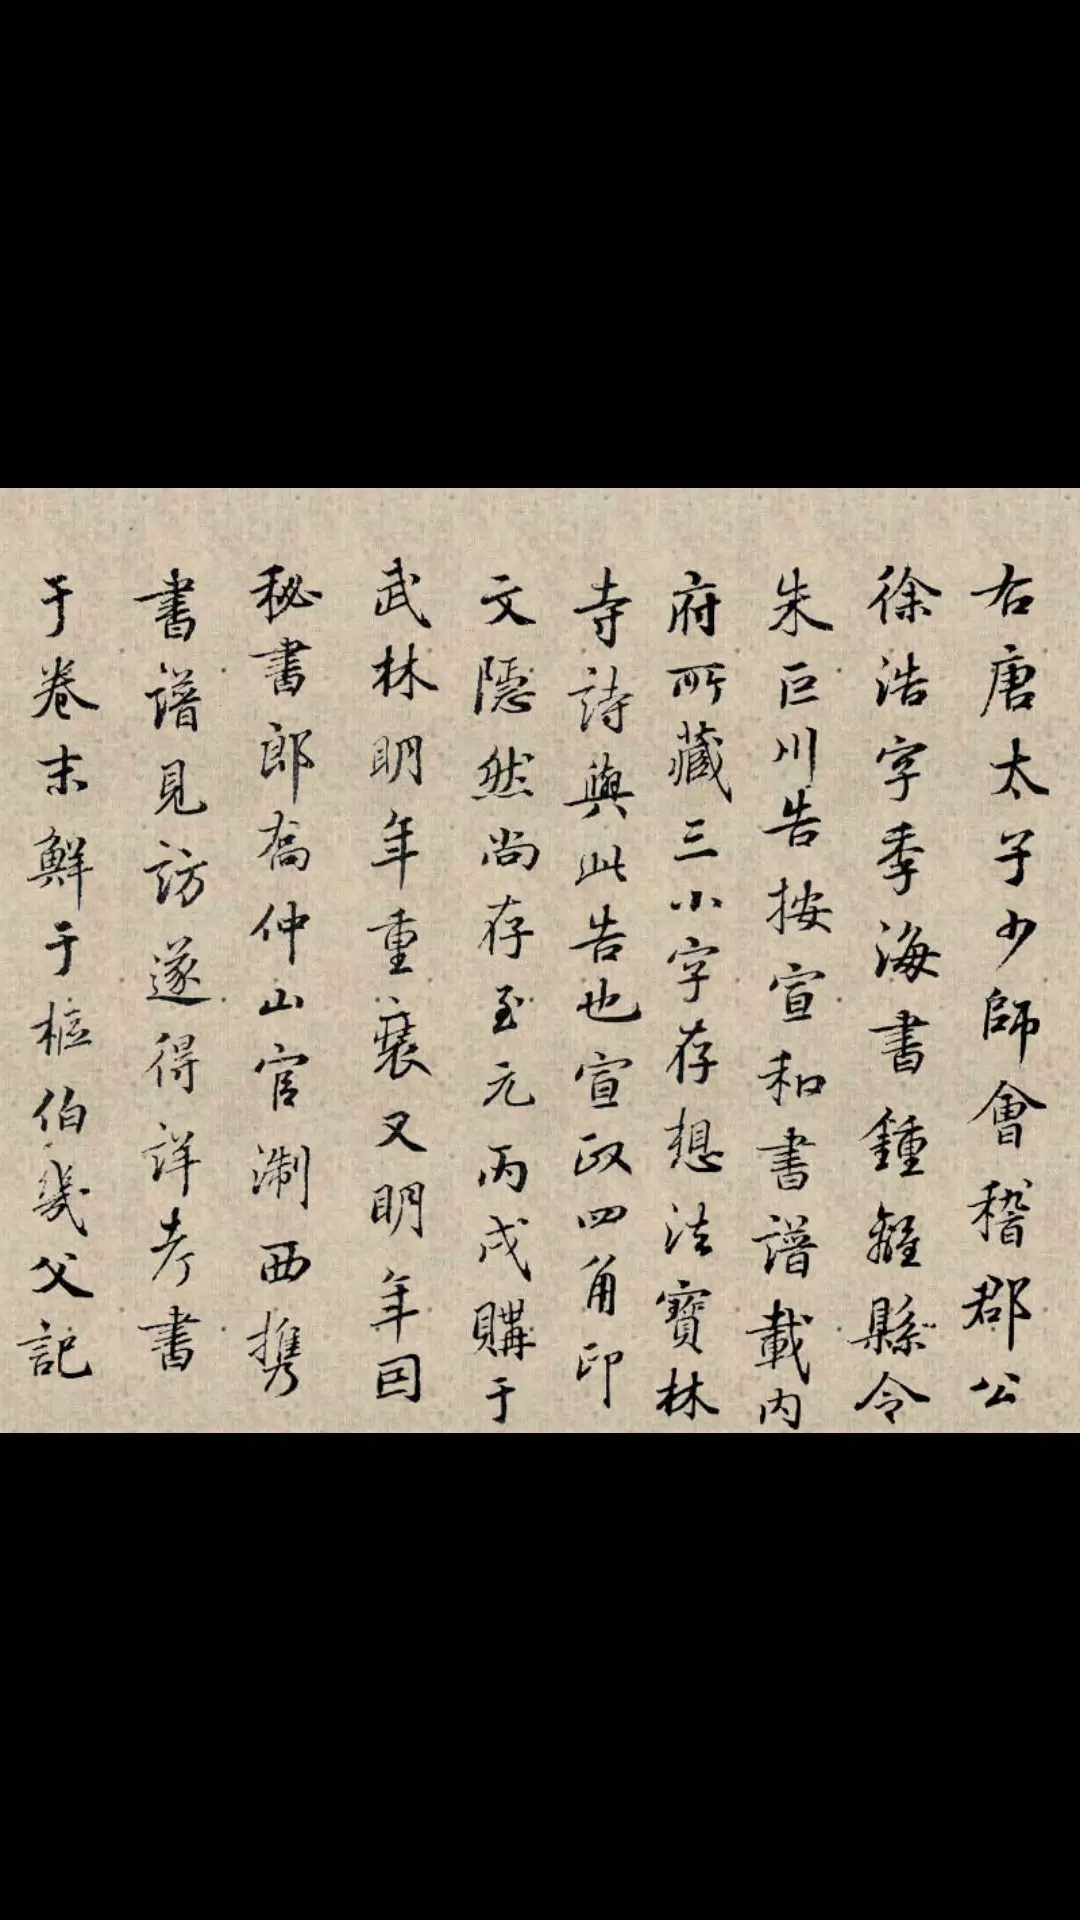 右唐太子少師會稽郡公
徐浩字季海書鍾離縣令
朱巨川告按宣和書譜載內
府所藏三小字存想法寶林
寺詩與此告也宣政四角印
文隱然尚存至元丙戌購于
武林明年重裝又明年因
秘書郎喬仲山官淛西携
書譜見訪遂得詳考書
于卷末鮮于樞伯幾父記